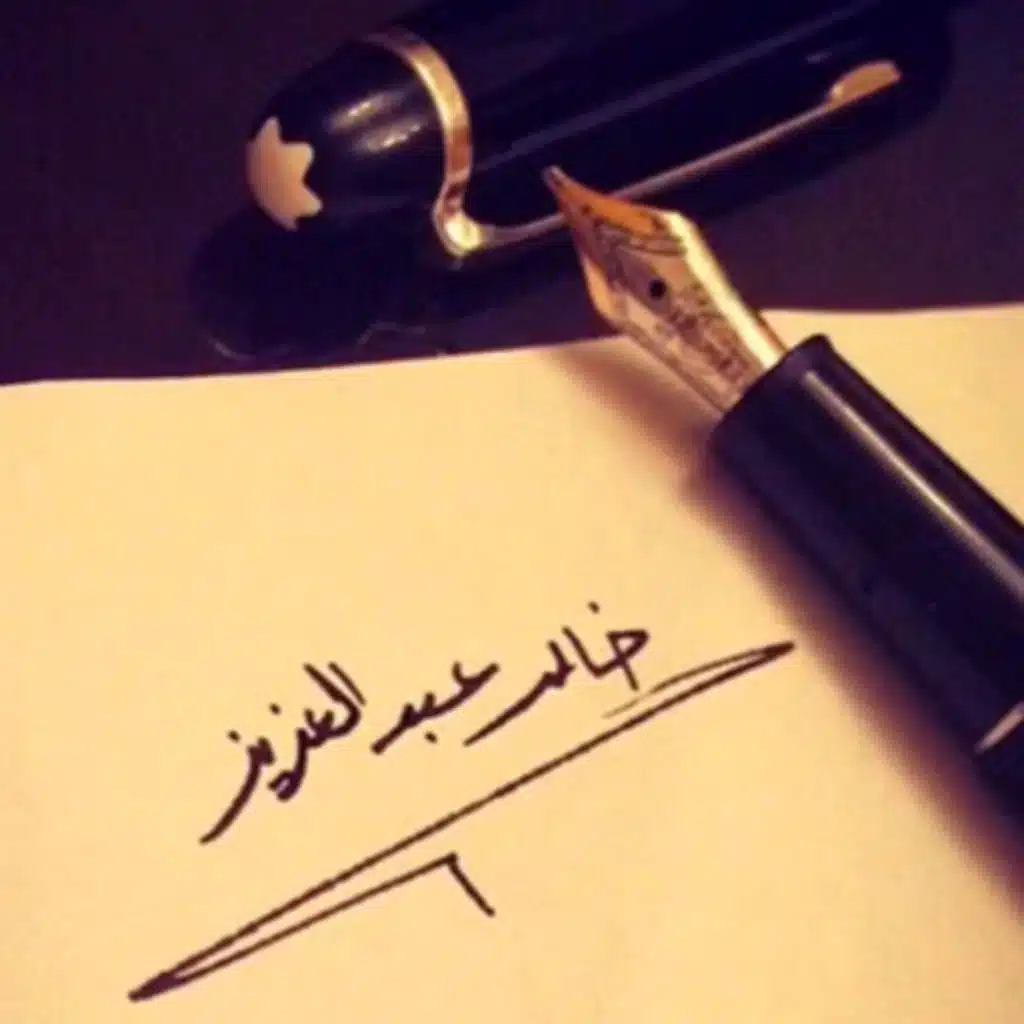 خالد عبد العزيز